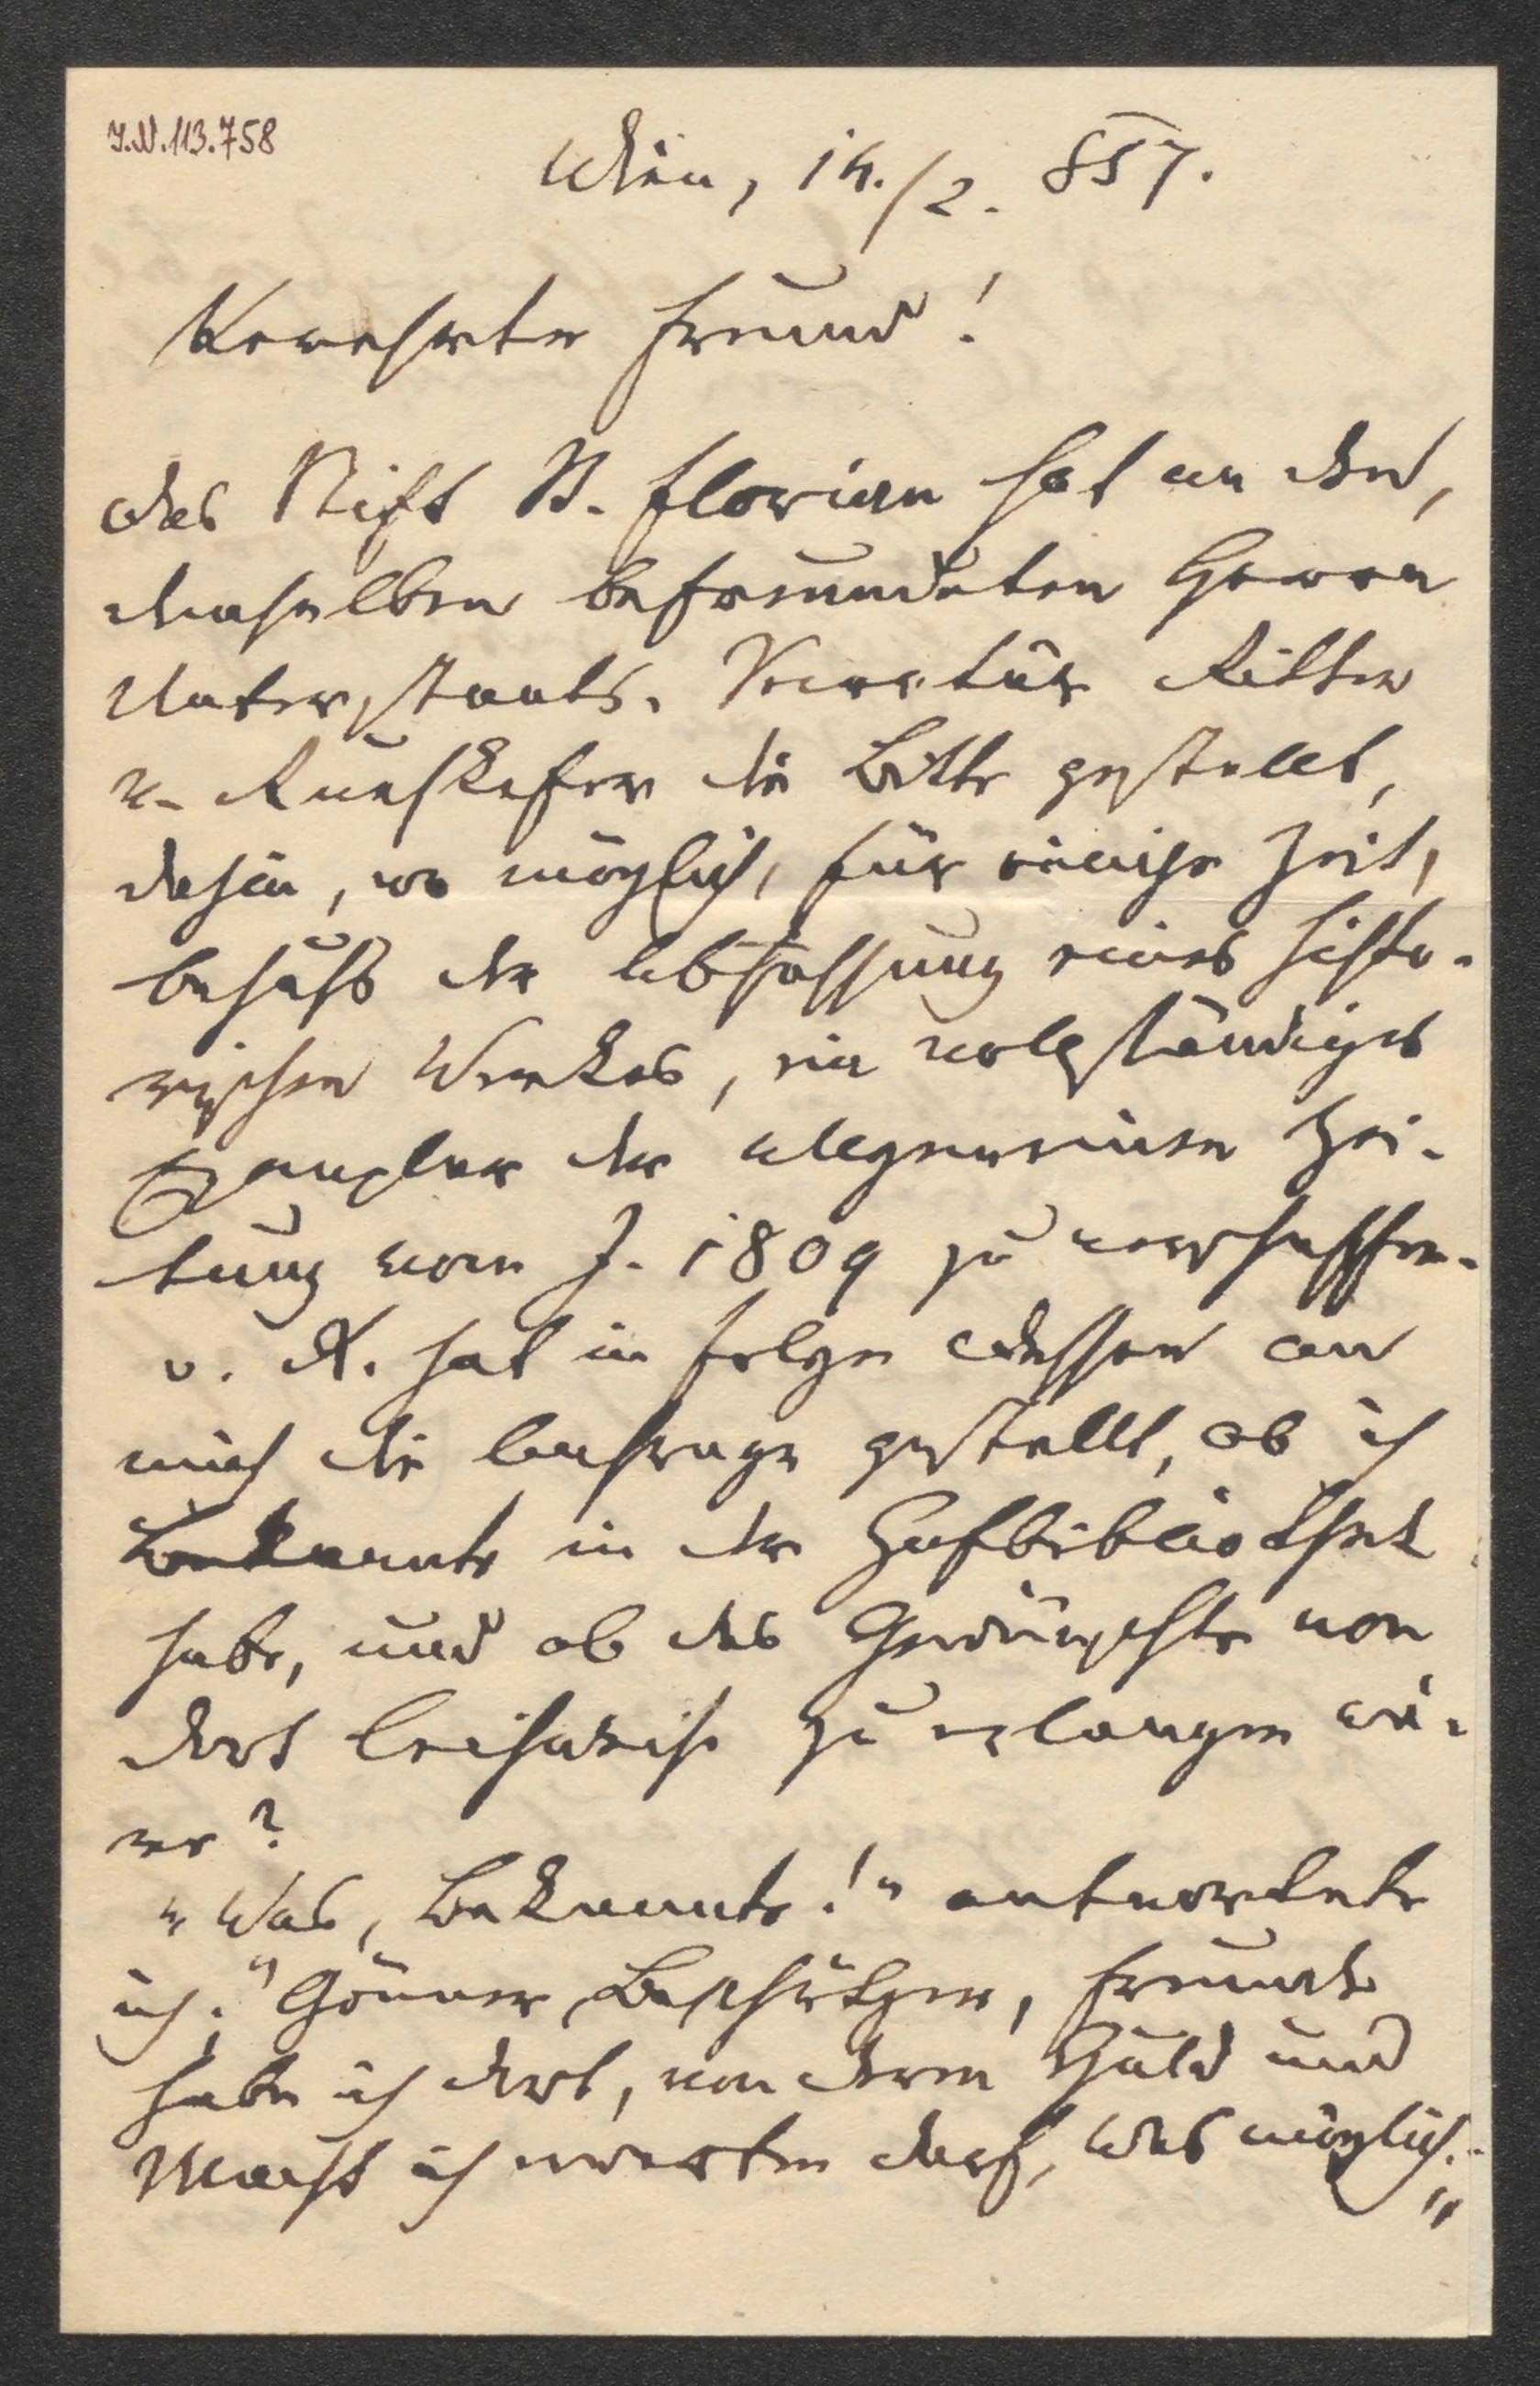 I.N. 113.758
Wien, 14./2. 857.
Verehrter Freund!
Das Stift St. Florian hat an den,
demselben befreundeten Herrn
Unterstaats-Secretär Ritter
v.
die Bitte gestellt,
dahin, wo möglich, für einige Zeit,
behufs der Abfassung eines histo-
rischen Werkes, ein vollständiges
Exemplar der allgemeinen Zei-
tung vom J. 1809 zu verschaffen.
v. R. hat in Folge dessen an
mich die Anfrage gestellt, ob ich
Bekannte in der Hofbibliothek
habe, und ob das Gewünschte von
dort leihweise zu erlangen wä-
re?
"Was, Bekannte!" antwortete
ich; "Gönner, Beschützer, Freunde
habe ich dort, von deren Huld und
Macht ich erwarten darf, was möglich."